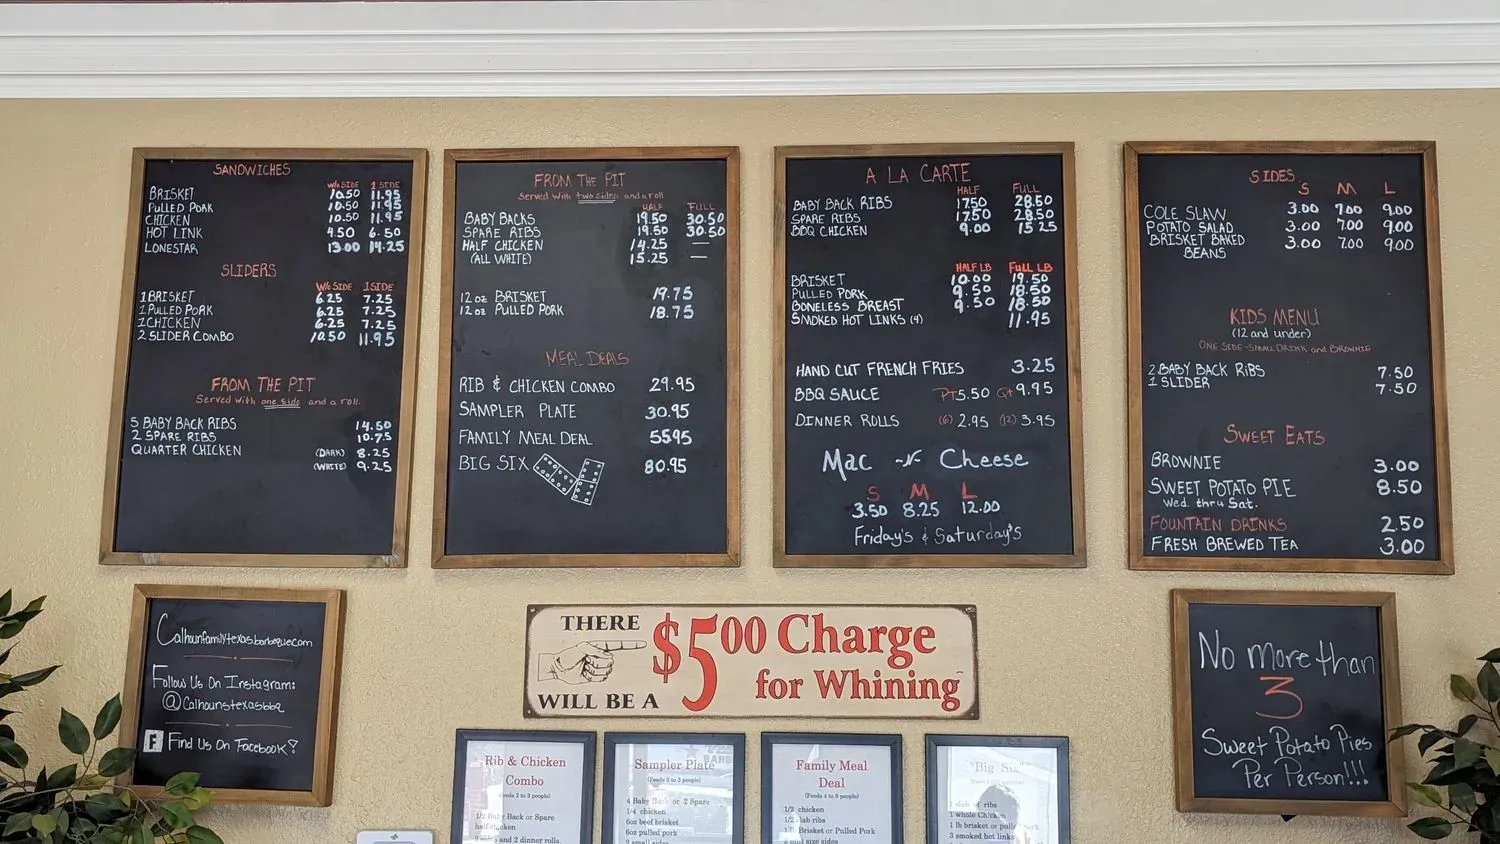 SANDWICHES
W/O SIDE 1 SIDE
BRISKET 10.50 11.95
PULLED PORK 10.50 11.95
CHICKEN 10.50 11.95
HOT LINK 4.50 6.50
LONESTAR 13.00 14.25
SLIDERS
W/O SIDE 1 SIDE
1 BRISKET 6.25 7.25
1 PULLED PORK 6.25 7.25
1 CHICKEN 6.25 7.25
2 SLIDER COMBO 10.50 11.95
FROM THE PIT
Served with one side and a roll.
5 BABY BACK RIBS 14.50
2 SPARE RIBS 10.75
QUARTER CHICKEN (DARK) 8.25
(WHITE) 9.25
FROM THE PIT
Served with two sides and a roll
HALF FULL
BABY BACKS 19.50 30.50
SPARE RIBS 19.50 30.50
HALF CHICKEN 14.25 —
(ALL WHITE) 15.25 —
12 oz BRISKET 19.75
12 oz PULLED PORK 18.75
MEAL DEALS
RIB & CHICKEN COMBO 29.95
SAMPLER PLATE 30.95
FAMILY MEAL DEAL 55.95
BIG SIX 80.95
A LA CARTE
HALF FULL
BABY BACK RIBS 17.50 28.50
SPARE RIBS 17.50 28.50
BBQ CHICKEN 9.00 15.25
HALF LB FULL LB
BRISKET 10.00 19.50
PULLED PORK 9.50 18.50
BONELESS BREAST 9.50 18.50
SMOKED HOT LINKS (4) 11.95
HAND CUT FRENCH FRIES 3.25
BBQ SAUCE PT 5.50 Qt 9.95
DINNER ROLLS (6) 2.95 (12) 3.95
Mac -N- Cheese
S M L
3.50 8.25 12.00
Friday's & Saturday's
SIDES
S M L
COLE SLAW 3.00 7.00 9.00
POTATO SALAD 3.00 7.00 9.00
BRISKET BAKED 3.00 7.00 9.00
BEANS
KIDS MENU
(12 and under)
ONE SIDE-SMALL DRINK and BROWNIE
2 BABY BACK RIBS 7.50
1 SLIDER 7.50
SWEET EATS
BROWNIE 3.00
SWEET POTATO PIE 8.50
Wed. thru Sat.
FOUNTAIN DRINKS 2.50
FRESH BREWED TEA 3.00
Calhounfamilytexasbarbeque.com
Follow Us On Instagram:
@Calhounstexasbbq
F Find Us On Facebook?
THERE
WILL BE A
$5.00 Charge
for Whining
No more than
3
Sweet Potato Pies
Per Person!!!
Rib & Chicken
Combo
(Feeds 2 to 3 people)
1/2 Baby Back or Spare
half chicken
2 sides and 2 dinner rolls.
Sampler Plate
(Feeds 2 to 3 people)
4 Baby Back or 2 Spare
1/4 chicken
6oz beef brisket
6oz pulled pork
2 small sides
Family Meal
Deal
(Feeds 4 to 6 people)
1/2 chicken
1/2 slab ribs
Brisket or Pulled Pork
sides
"Big Six"
1 slab of ribs
1 whole Chicken
1 lb brisket or pulled pork
3 smoked hot links